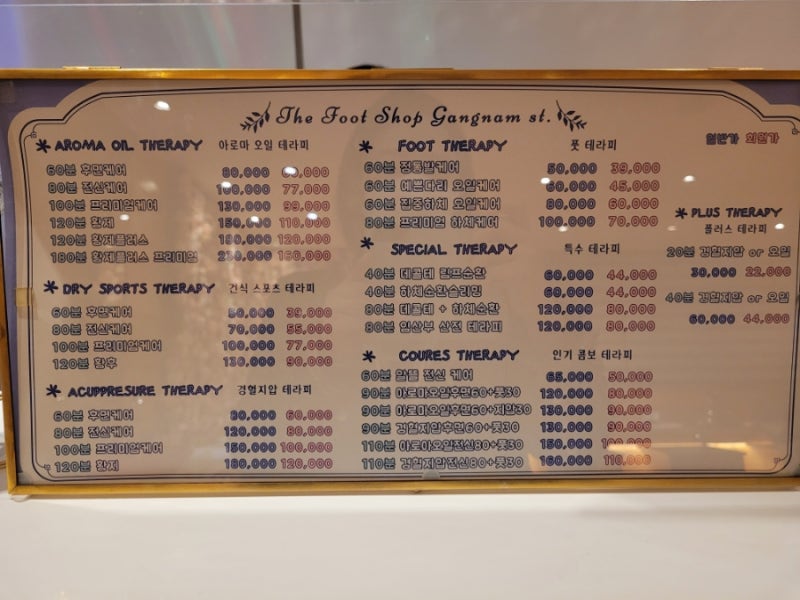 The Foot Shop Gangnam st.
AROMA OIL THERAPY 아로마 오일 테라피
60분 후면케어 80,000 60,000
80분 전신케어 100,000 77,000
100분 프리미엄케어 130,000 99,000
120분 황제 150,000 110,000
120분 황제플러스 180,000 120,000
180분 황제플러스 프리미엄 160,000
DRY SPORTS THERAPY 건식 스포츠 테라피
60분 후면케어 50,000 39,000
80분 전신케어 70,000 55,000
100분 프리미엄케어 100,000 77,000
120분 황후 130,000 90,000
ACUPPRESURE THERAPY 경혈지압 테라피
60분 후면케어 80,000 60,000
80분 전신케어 120,000 80,000
100분 프리미엄케어 150,000 100,000
120분 황제 180,000 120,000
FOOT THERAPY 풋 테라피
60분 정통발케어 50,000 39,000
60분 예쁜다리 오일케어 60,000 45,000
60분 집중하체 오일케어 80,000 60,000
80분 프리미엄 하체케어 100,000 70,000
SPECIAL THERAPY 특수 테라피
40분 데콜테 림프순환 60,000 44,000
40분 하체순환슬리밍 60,000 44,000
80분 데콜테 + 하체순환 120,000 80,000
80분 임산부 산전 테라피 120,000 80,000
COURES THERAPY 인기 콤보 테라피
60분 알뜰 전신 케어 65,000 50,000
90분 아로마오일후면60+풋30 120,000 80,000
90분 아로마오일후면60+지압30 130,000 90,000
90분 경혈지압후면60+풋30 130,000 90,000
110분 아로마오일전신80+풋30 150,000 100,000
110분 경혈지압전신80+풋30 160,000 110,000
일반가 회원가
PLUS THERAPY
플러스 테라피
20분 경혈지압 or 오일
30,000 22,000
40분 경혈지압 or 오일
60,000 44,000